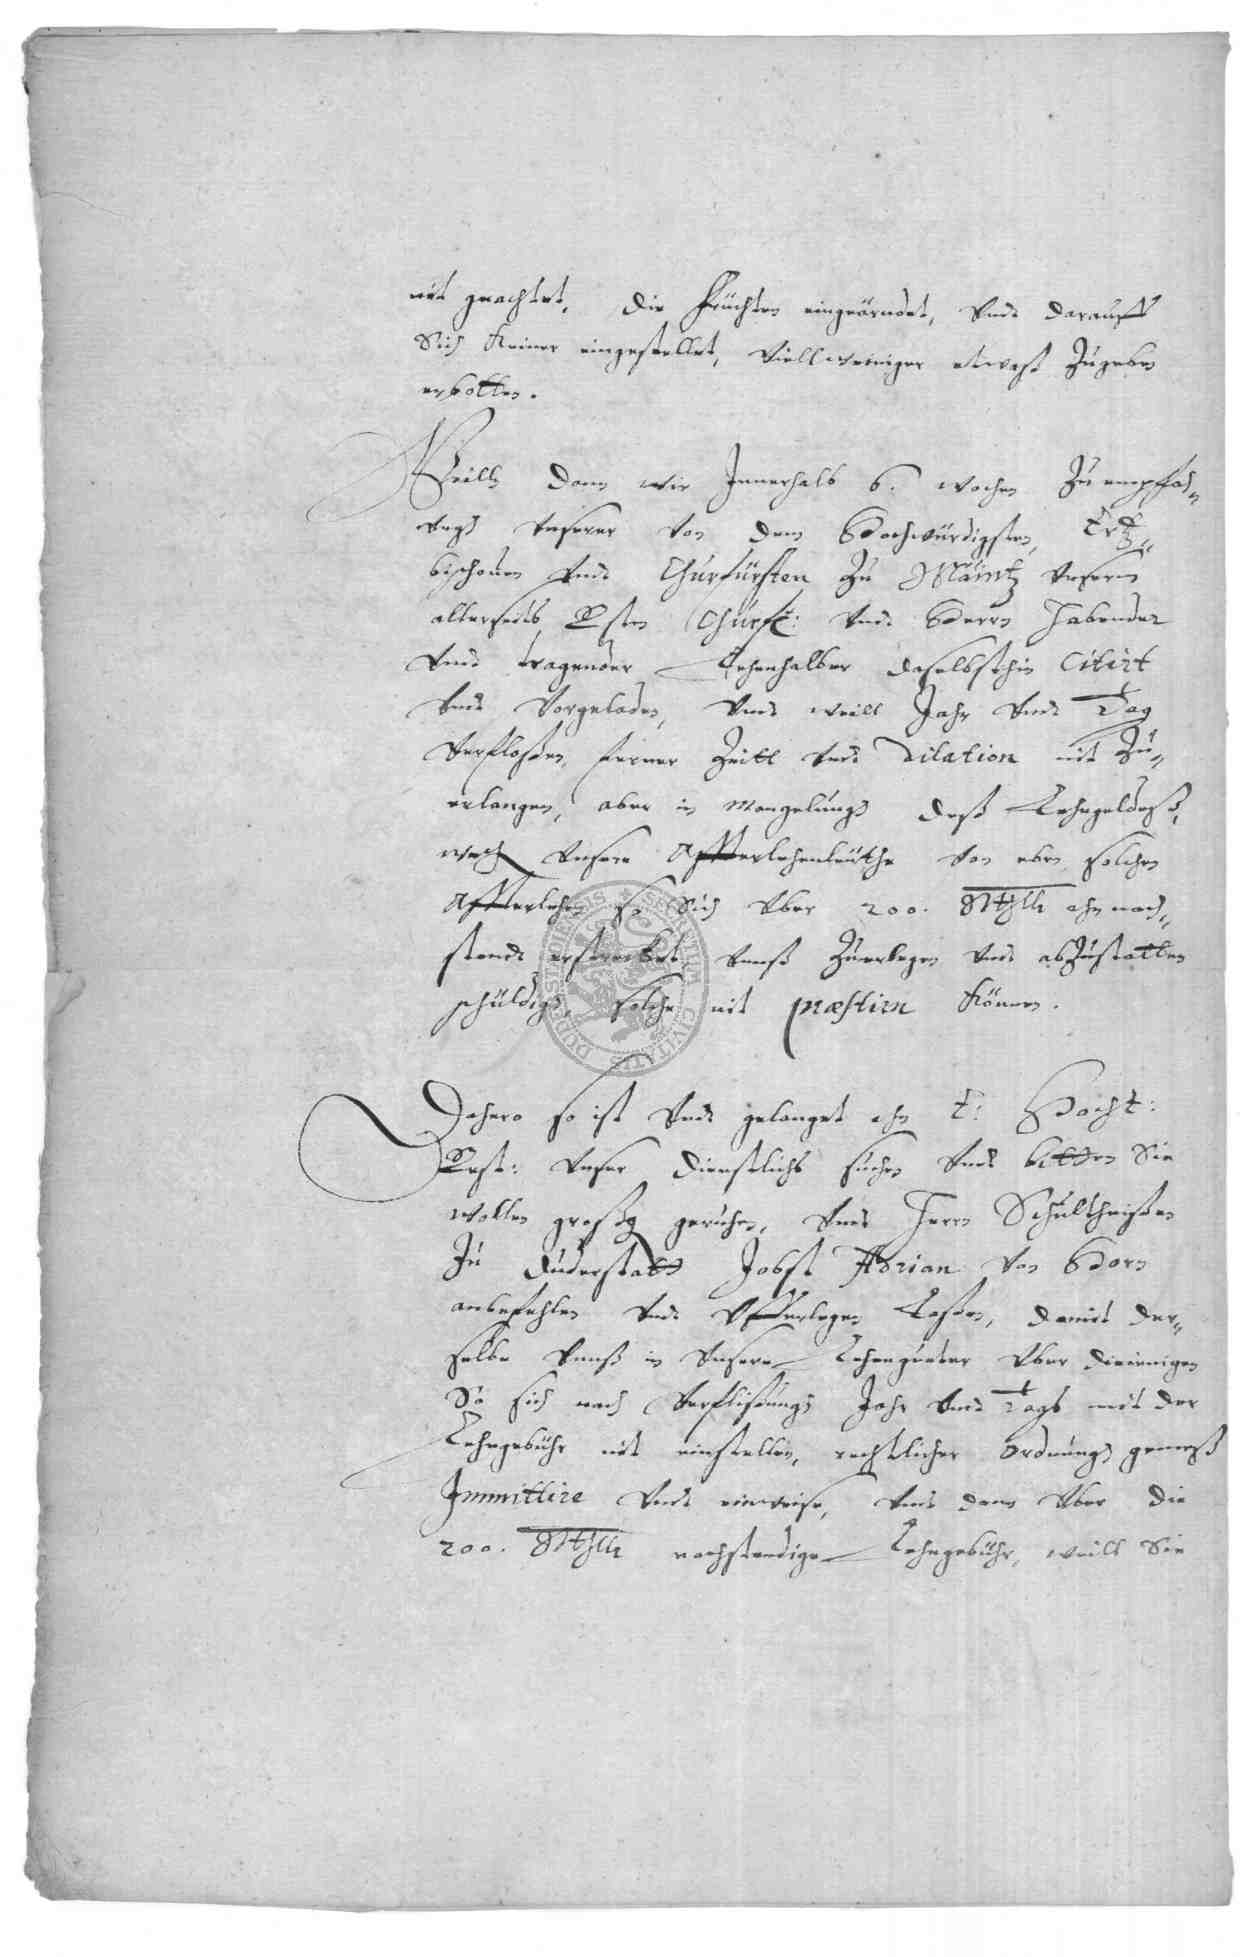 nit geachtet, die früchten eingeärndet, vnd darauff
Sich Keiner eingestellet, viellweiniger etwaß zugeben
erbotten.
Weill dann wir Innerhalb 6. wochen zu empfah„
ung vnserer von dem Hochwürdigsten, Ertz„
bischouen vnd Churfürsten zu Mäintz vnserm
allerseits Churft: vnd Herrn habender
vnd tragender Lehenhalber daselbsthin Citirt
vnd vorgeladen, vnd weill Jahr vnd Tag
verfloßen, ferner Zeitt vnd dilation nit zu„
erlangen, aber in mangelung deß Lehngeldeß,
welch vnsere Affterlehenleuthe von eben solchen
Affterlehn so Sich vber 200. Rthlr ahn nach„
stand erstrecket, vnnß zuerlegen vnd abzustatten
schüldig, solche nit præstirn können.
Dahero so ist vnd gelanget ahn E: Hocht:
Rest: vnser dienstlichs suchen vnd bitten Sie
wollen großg geruhen, vnd Herrn Schultheißen
zu Duderstadt Jobst Adrian von Horn
anbefehlen vnd Vfferlegen Laßen, damit der„
selbe vnnß in vnsere Lehengueter vber dieienigen
So sich nach verfließung Jahr vnd Tags mit der
Lehngebühr nit einstellen, rechtlicher ordnung gemeß
Immittire vnd einweise, vnd dann vber die
200. Rthlr nachstendige Lehngebühr, weill Sie
SECRETUM CIVITATIS DUDERSTADIENSIS